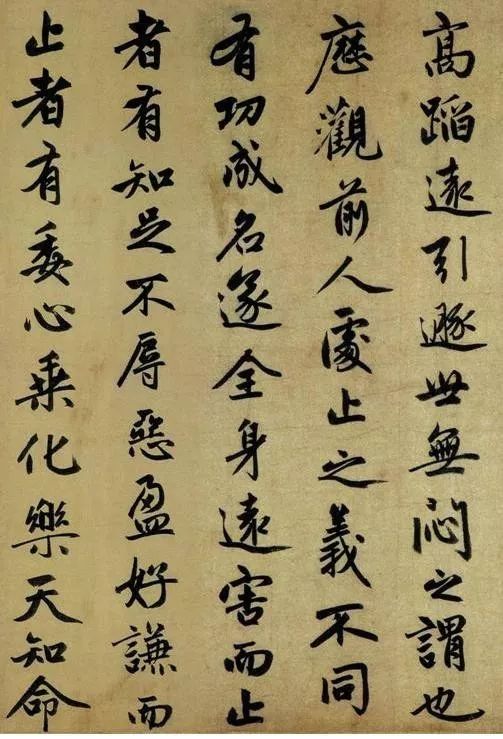 高蹈遠引遯世無悶之謂也
歷觀前人處止之義不同
有功成名遂全身遠害而止
者有知足不辱惡盈好謙而
止者有委心乗化樂天知命